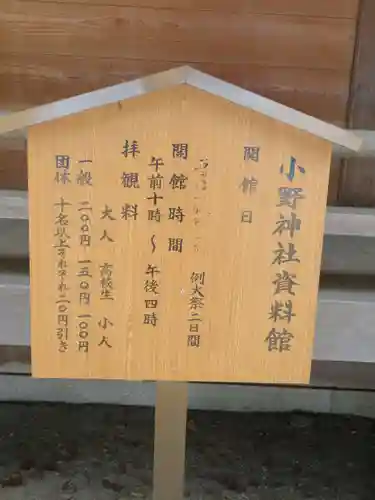 小野神社資料館
開館日
例大祭二日間
開館時間
午前十時 〜 午後四時
拝観料
大人 高校生 小人
一般 二〇〇円 一五〇円 一〇〇円
団体 十名以上それぞれ二〇円引き